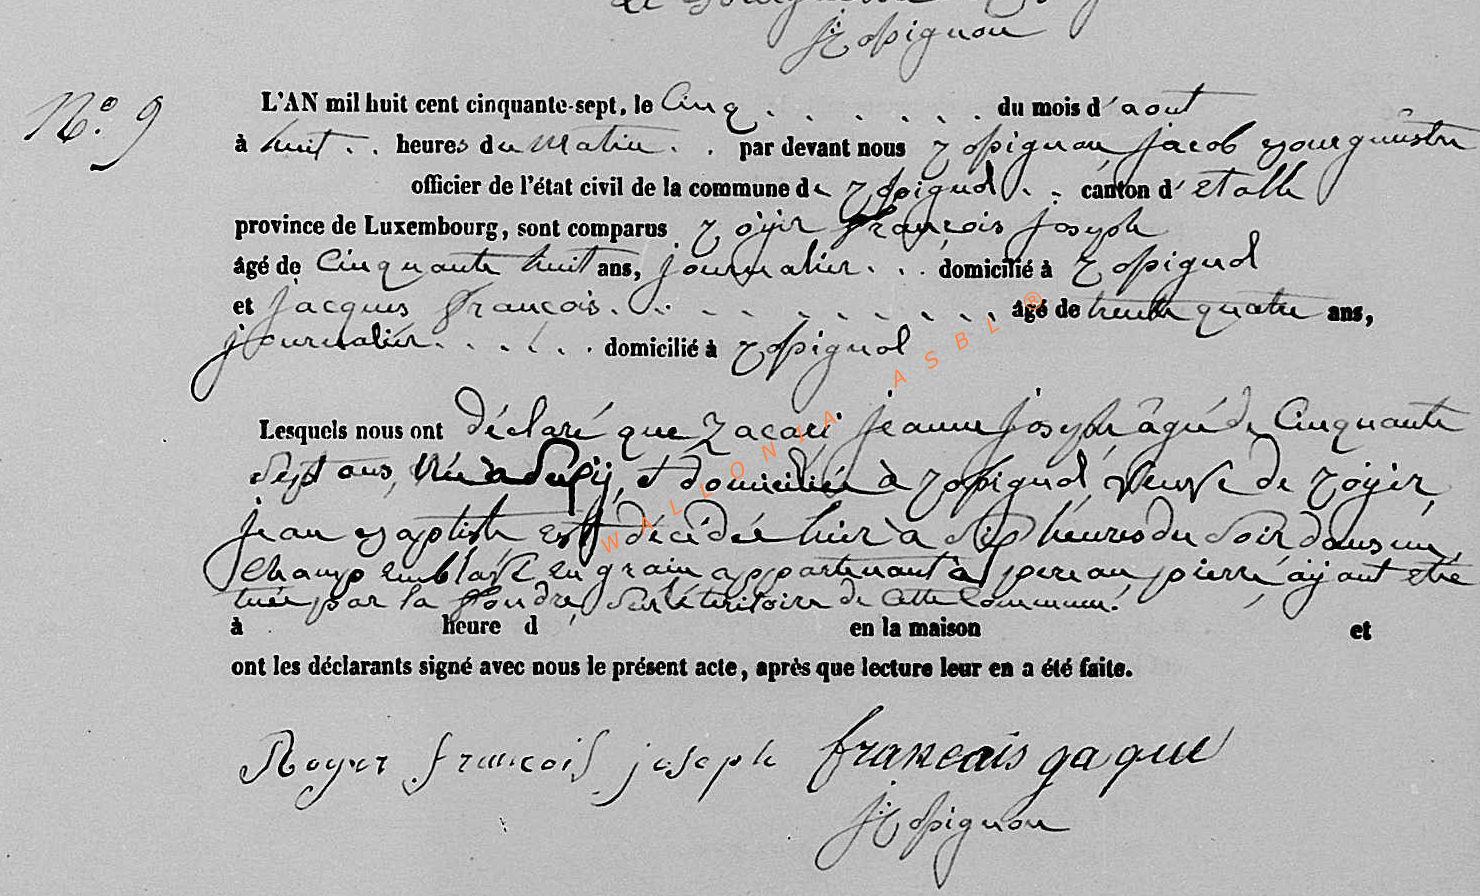 J: Rossignon
N.o 9
L'AN mil huit cent cinquante-sept, le Cinq du mois d'aout
à huit heures du Matin par devant nous Rossignon jacob Bourguistre
officier de l'état civil de la commune de Rossignol canton d'Etalle
province de Luxembourg, sont comparus Roÿer François joseph
âgé de Cinquante huit ans, journalier domicilié à Rossignol
et jacques François âgé de trente quatre ans,
journalier domicilié à Rossignol
Lesquels nous ont déclaré que Zacari jeanne joseph âgé de Cinquante
sept ans, Née à et domiciliée à Rossignol, Veuve de Roÿer
jean Baptiste est décédée hier à six heures du soir dans un
champ emblavé en grain appartenant à pierre aÿant etée
tuée par la Foudre, sur le teritoire de cette Commune.
à heure d en la maison et
ont les déclarants signé avec nous le présent acte, après que lecture leur en a été faite.
Royer francois joseph francais gaque
J: Rossignon
WALLONIA ASBL ®